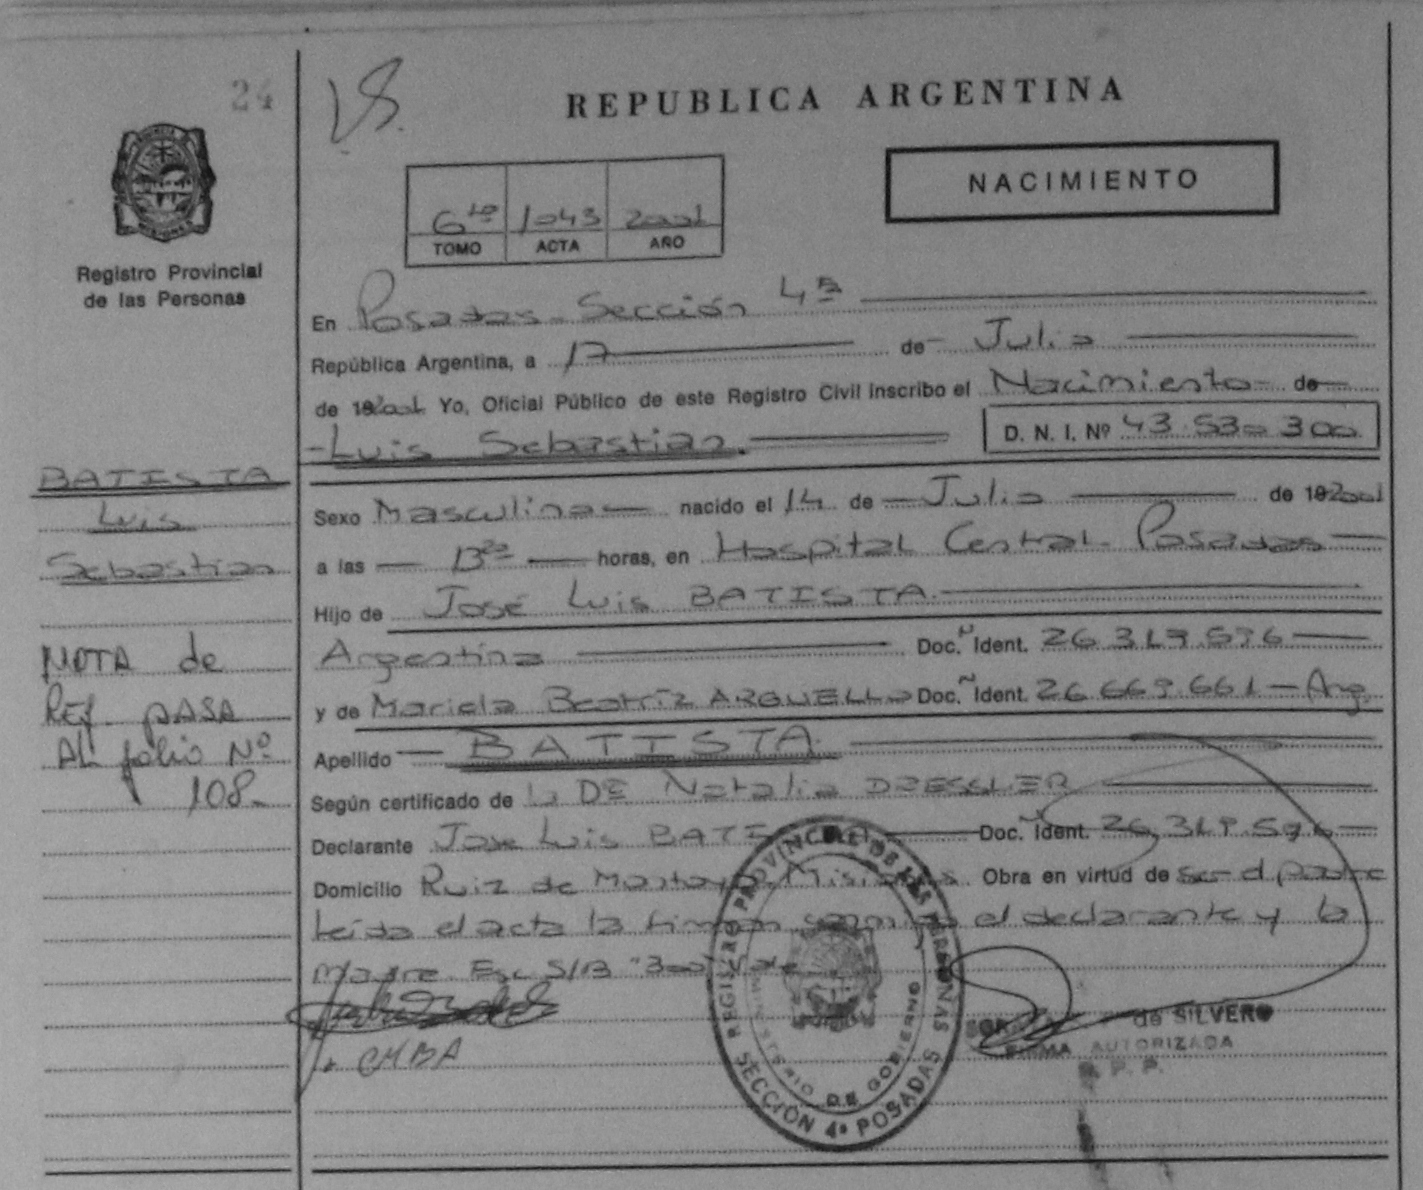 24
REPUBLICA ARGENTINA
NACIMIENTO
6to 1043 2001
TOMO ACTA AÑO
Registro Provincial
de las Personas
En Posadas - Sección 4ª
República Argentina, a 17 de Julio
de 2001 Yo, Oficial Público de este Registro Civil inscribo el Nacimiento de
Luis Sebastian.
D. N. I. Nº 43.530.300
BATISTA
Luis
Sebastian
Sexo Masculino nacido el 14 de Julio de 2001
a las 13 horas, en Hospital Central Posadas
Hijo de José Luis BATISTA
Argentina Doc. Ident. 26.319.596
y de Mariela Beatríz ARGUELLO Doc. Ident. 26.669.661 - Arg.
NOTA de
Ref. pASA
AL folio Nº
108-
Apellido BATISTA
Según certificado de la Natalia DRESSLER
Declarante Jose Luis BATISTA Doc. Ident. 26.319.596
Domicilio Ruiz de Montoya, Misiones. Obra en virtud de ser el padre
Leída el acta la firman conmigo el declarante y la
Madre. S/B "300"
REGISTRO PROVINCIAL DE LAS PERSONAS
MINISTERIO DE GOBIERNO
SECCIÓN 4ª POSADAS
de SILVERO
FIRMA AUTORIZADA
R. P. P.